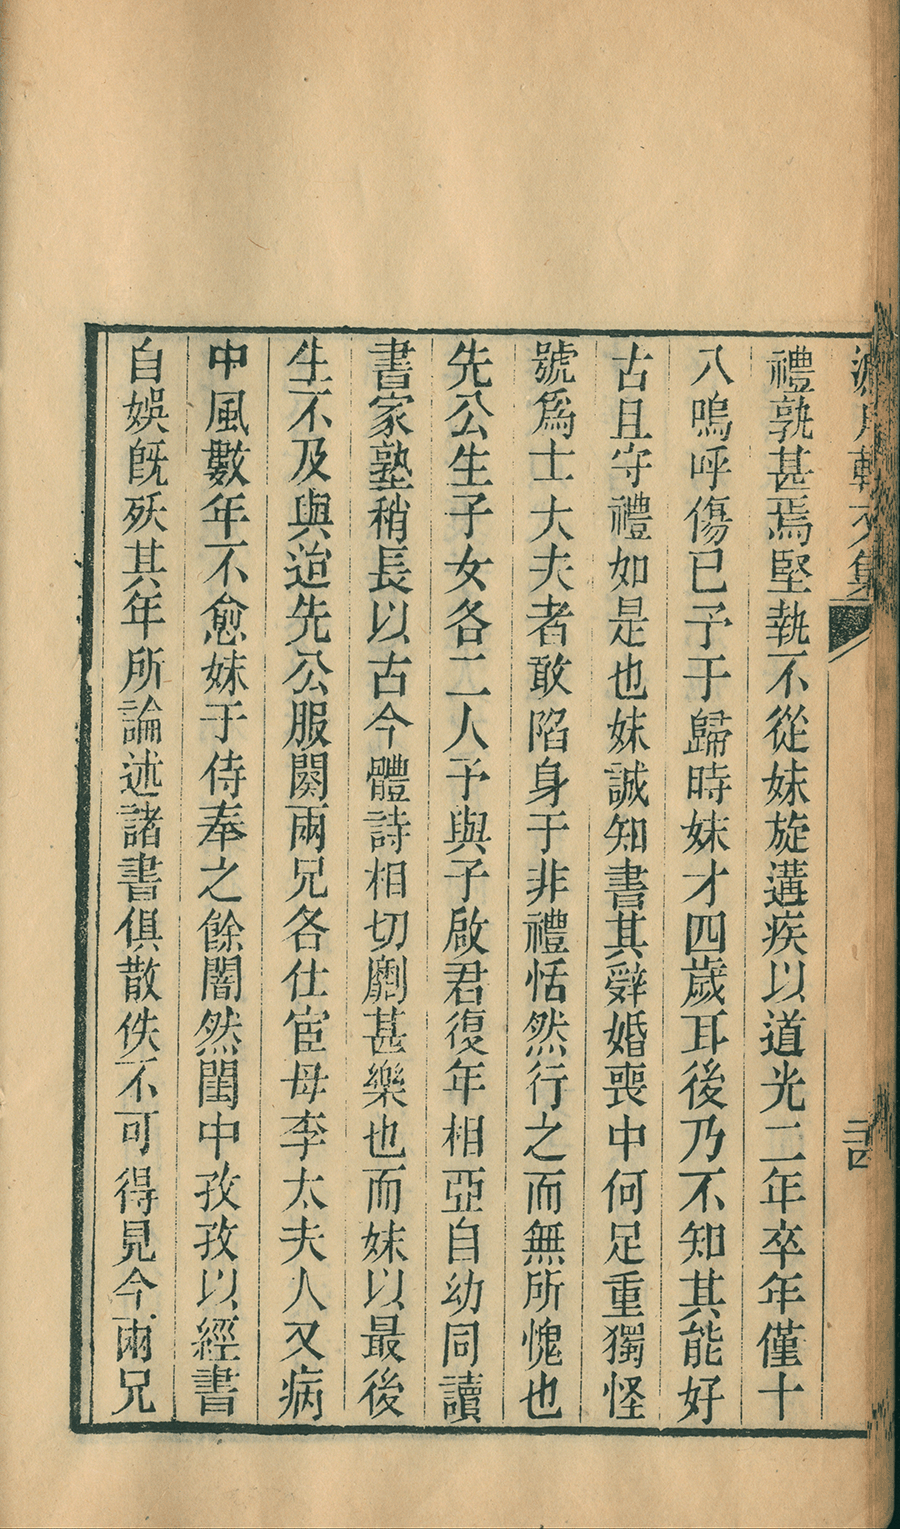 禮孰甚焉堅執不從妹旋遘疾以道光二年卒年僅十
八嗚呼傷已予于歸時妹才四歲耳後乃不知其能好
古且守禮如是也妹誠知書其辤婚喪中何足重獨怪
號爲士大夫者敢陷身于非禮恬然行之而無所愧也
先公生子女各二人予與子啟君復年相亞自幼同讀
書家塾稍長以古今體詩相切劘甚樂也而妹以最後
生不及與迨先公服闋兩兄各仕宦母李太夫人又病
中風數年不愈妹于侍奉之餘闇然閨中孜孜以經書
自娛旣殀其年所論述諸書俱散佚不可得見今兩兄